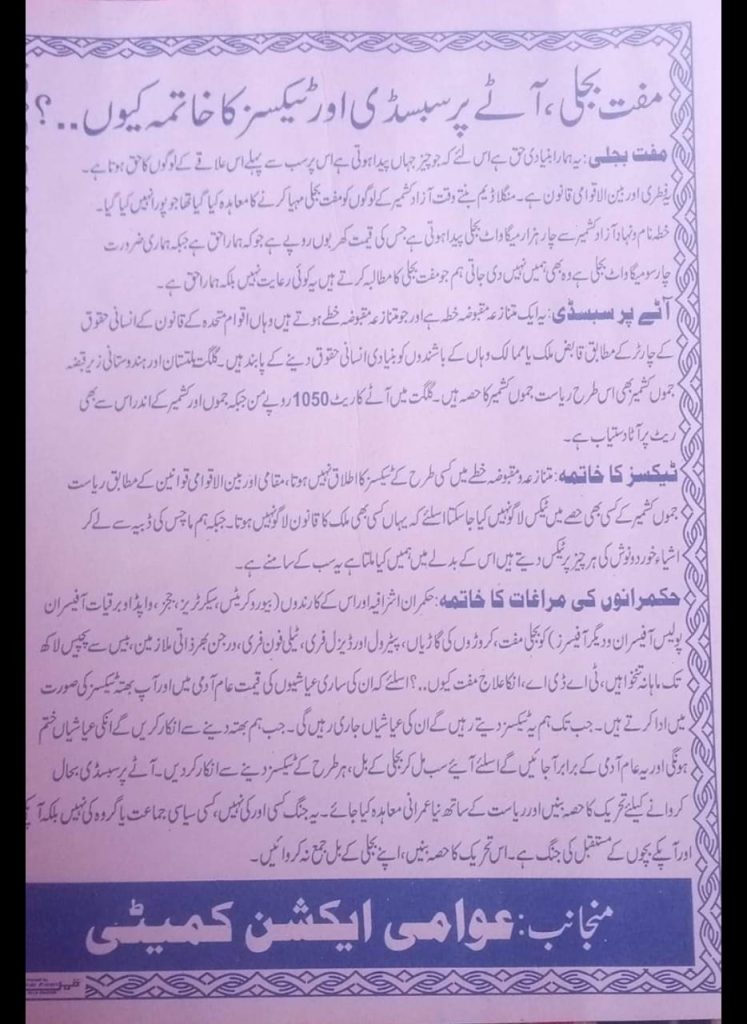 مفت بجلی، آٹے پر سبسڈی اور ٹیکسز کا خاتمہ کیوں..؟
مفت بجلی: یہ ہمارا بنیادی حق ہے اس لئے کہ جو چیز جہاں پیدا ہوتی ہے اس پر سب سے پہلے اس علاقے کے لوگوں کا حق ہوتا ہے۔
یہ فطری اور بین الاقوامی قانون ہے۔ منگلا ڈیم بنتے وقت آزاد کشمیر کے لوگوں کو مفت بجلی مہیا کرنے کا معاہدہ کیا گیا تھا جو پورا نہیں کیا گیا۔
خطہ نام ونہاد آزاد کشمیر سے چار ہزار میگا واٹ بجلی پیدا ہوتی ہے جس کی قیمت کھربوں روپے ہے جو کہ ہمارا حق ہے جبکہ ہماری ضرورت
چار سو میگا واٹ بجلی ہے وہ بھی ہمیں نہیں دی جاتی ہم جو مفت بجلی کا مطالبہ کرتے ہیں یہ کوئی رعایت نہیں بلکہ ہمارا حق ہے۔
آٹے پر سبسڈی: یہ ایک متنازعہ مقبوضہ خطہ ہے اور جو متنازعہ مقبوضہ خطے ہوتے ہیں وہاں اقوام متحدہ کے قانون کے انسانی حقوق
کے چارٹر کے مطابق قابض ملک یا ممالک وہاں کے باشندوں کو بنیادی انسانی حقوق دینے کے پابند ہیں۔ گلگت بلتستان اور ہندوستانی زیر قبضہ
جموں کشمیر بھی اس طرح ریاست جموں کشمیر کا حصہ ہیں۔ گلگت میں آٹے کا ریٹ 1050 روپے من جبکہ جموں اور کشمیر کے اندر اس سے بھی
ریٹ پر آٹا دستیاب ہے۔
ٹیکسز کا خاتمہ: متنازعہ و مقبوضہ خطے میں کسی طرح کے ٹیکسز کا اطلاق نہیں ہوتا، مقامی اور بین الاقوامی قوانین کے مطابق ریاست
جموں کشمیر کے کسی بھی حصے میں ٹیکس لاگو نہیں کیا جا سکتا اسلئے کہ یہاں کسی بھی ملک کا قانون لاگو نہیں ہوتا۔ جبکہ ہم ماچس کی ڈبیہ سے لے کر
اشیاء خوردونوش کی ہر چیز پر ٹیکس دیتے ہیں اس کے بدلے میں ہمیں کیا ملتا ہے یہ سب کے سامنے ہے۔
حکمرانوں کی مراغات کا خاتمہ: حکمران اشرافیہ اور اس کے کارندوں (بیوروکریٹس، سیکرٹریز، ججز، واپڈا و برقیات آفیسران
پولیس آفیسران و دیگر آفیسرز) کو بجلی مفت، کروڑوں کی گاڑیاں، پیٹرول اور ڈیزل فری، ٹیلی فون فری، درجن بھر ذاتی ملازمین، بیس سے پچیس لاکھ
تک ماہانہ تنخواہیں، ٹی اے ڈی اے، انکا علاج مفت کیوں..؟ اسلئے کہ ان کی ساری عیاشیوں کی قیمت عام آدمی میں اور آپ بھتہ ٹیکسز کی صورت
میں ادا کرتے ہیں۔ جب تک ہم یہ ٹیکسز دیتے رہیں گے ان کی عیاشیاں جاری رہیں گی۔ جب ہم بھتہ دینے سے انکار کریں گے انکی عیاشیاں ختم
ہونگی اور یہ عام آدمی کے برابر آ جائیں گے اسلئے آئیے سب مل کر بجلی کے بل، ہر طرح کے ٹیکسز دینے سے انکار کر دیں۔ آٹے پر سبسڈی بحال
کروانے کیلئے تحریک کا حصہ بنیں اور ریاست کے ساتھ نیا عمرانی معاہدہ کیا جائے۔ یہ جنگ کسی اور کی نہیں، کسی سیاسی جماعت یا گروہ کی نہیں بلکہ
اور آپکے بچوں کے مستقبل کی جنگ ہے۔ اس تحریک کا حصہ بنیں، اپنے بجلی کے بل جمع نہ کروائیں۔
منجانب: عوامی ایکشن کمیٹی